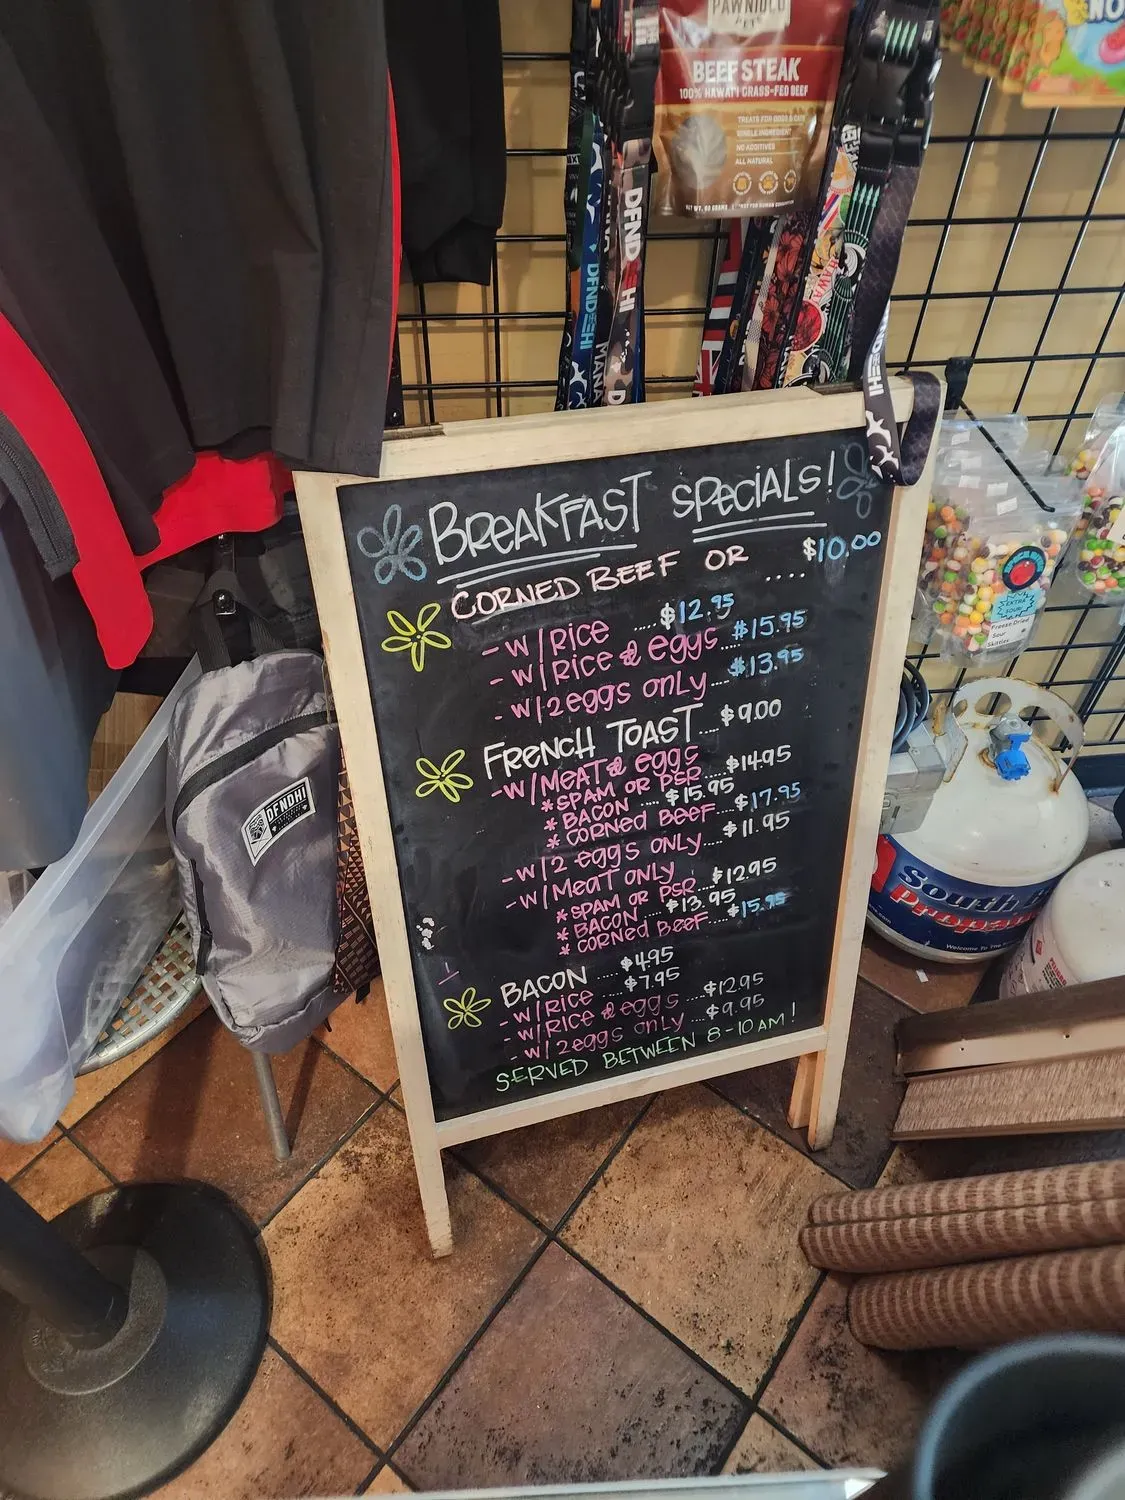 PAWNIOLO
PETS
BEEF STEAK
100% HAWAI'I GRASS-FED BEEF
TREATS FOR DOGS & CATS
SINGLE INGREDIENT
NO ADDITIVES
ALL NATURAL
DFND HI
DFND HI
MANA
HAWAI
BREAKFAST SPECIALS!
CORNED BEEF OR .... $10.00
- W/RICE ..... $12.95
- W/RICE & eggs... $15.95
- W/2eggs only.... $13.95
FRENCH TOAST.... $9.00
- W/MEAT & eggs
* SPAM OR PSR .... $14.95
* BACON .... $15.95
* CORNED BEEF... $17.95
- W/2 eggs only.... $11.95
- W/MEAT ONLY
* SPAM OR PSR... $12.95
* BACON .... $13.95
* CORNED BEEF... $15.95
BACON .... $4.95
- W/RICE .... $7.95
- W/RICE & eggs .... $12.95
- W/2eggs only .... $9.95
SERVED BETWEEN 8-10AM!
DFNDHI
EXTRA
SOUR
Freeze Dried
Sour
Skittles
South
Propane
Welcome To The